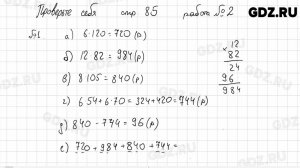 GDZ.RU
Проверьте себя стр 85 работа №2
№1. а) 6·120=720(р)
б) 12·82=984(р)
12
82
24
96
984
в) 8·105=840(р)
г) 6·54+6·70=324+420=744(р)
д) 840-744=96(р)
е) 720+984+840+744=